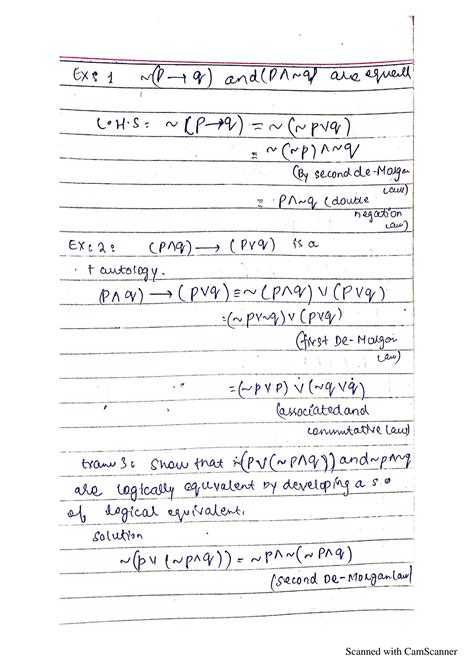 Ex: 1 ~(P→q) and (P∧~q) are equell
L.H.S = ~(P→q) = ~(~p∨q)
= ~(~p)∧~q
(By second de-Morgan
Law)
= P∧~q (double
negation
law)
Ex: 2: (P∧q) → (P∨q) is a
tautology.
(P∧q) → (P∨q) ≡ ~(P∧q)∨(P∨q)
=(~p∨~q)∨(P∨q)
(first De-Morgan
Law)
=(~p∨p)∨(~q∨q)
(associated and
commutative law)
3: Show that ~(P∨(~P∧q)) and ~p∧~q
are logically equivalent by developing a s
of logical equivalent.
Solution
~(p∨(~p∧q)) = ~p∧~(~P∧q)
(second De-Morgan law)
Scanned with CamScanner